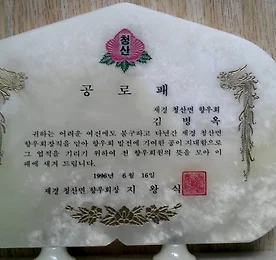 청산
공로패
재경 청산면 향우회
김병옥
귀하는 어려운 여건에도 불구하고 다년간 재경 청산면
향우회장직을 맡아 향우회 발전에 기여한 공이 지대함으로
그 업적을 기리기 위하여 전 향우회원의 뜻을 모아 이
패에 새겨 드립니다.
1996년 6월 16일
재경 청산면 향우회장 지왕식